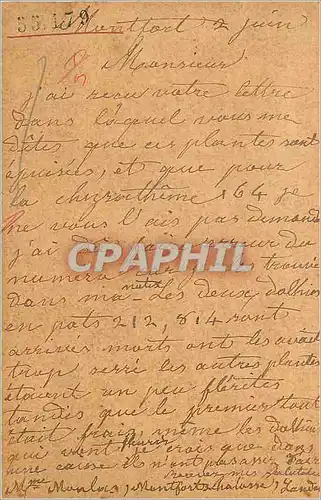 33.159
Montfort 2 juin
Monsieur
j'ai reçu votre lettre
dans laquel vous me
dites que ces plantes sont
épuisées, et que pour
la 164 je
ne vous l'ais pas demandé
j'ai
numero trouve
dans ma Les deux dalhias
en pots 212, 814 sont
arrivés morts ont les avait
trop serré les autres plantes
étaient un peu flêtries
tandis que le premier tout
était frais, même les dalhias
qui vont fleurir je crois que dans
une caisse il n'ont pas assez d'air
Mme Montfort Landes
CPAPHIL